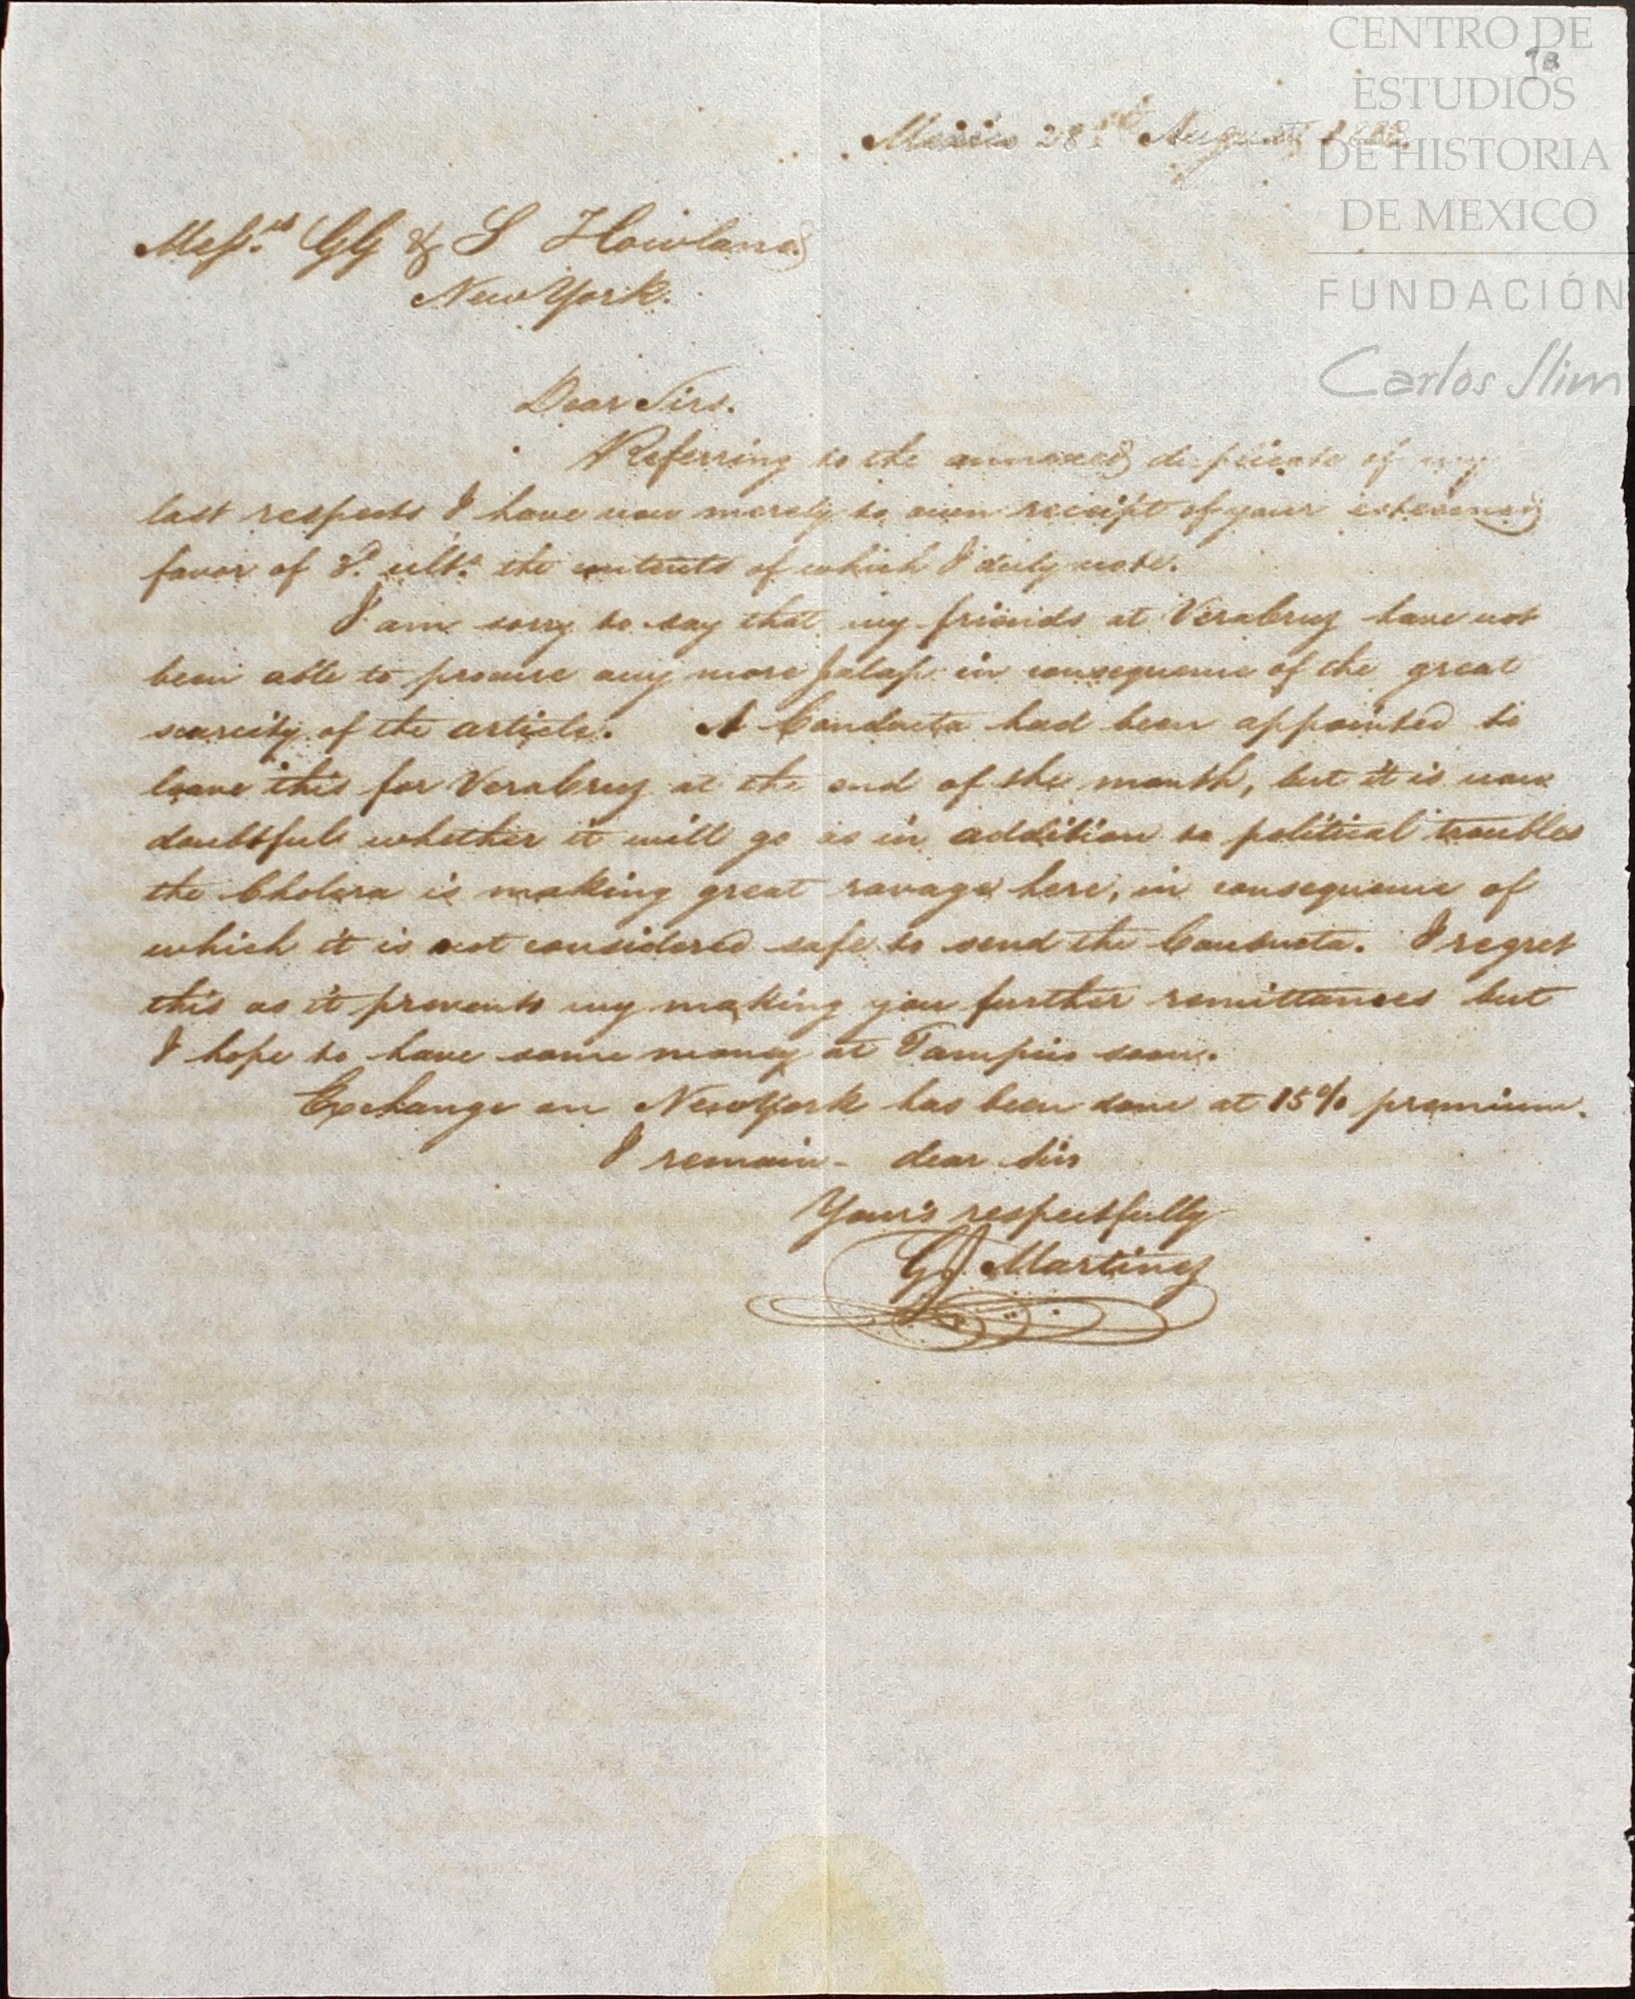 CENTRO DE
ESTUDIOS
DE HISTORIA
DE MEXICO
FUNDACIÓN
Carlos Slim
Mexico 28 August
Mess.rs GG & S Howland
New York.
Dear Sirs.
Referring to the annexed duplicate of my
last respects I have now merely to own receipt of your esteemed
favor of ult.o the contents of which I duly note.
I am sorry to say that my friends at VeraCruz have not
been able to procure any more Jalap in consequence of the great
scarcity of the article. A Conducta had been appointed to
leave this for VeraCruz at the end of the month, but it is now
doubtful whether it will go as in addition to political troubles
the Cholera is making great ravage here, in consequence of
which it is not considered safe to send the Conducta. I regret
this as it prevents my making you further remittances but
I hope to have some money at Tampico soon.
Exchange on New York has been done at 15% premium.
I remain - dear Sirs
Your's respectfully
GJ Martinez